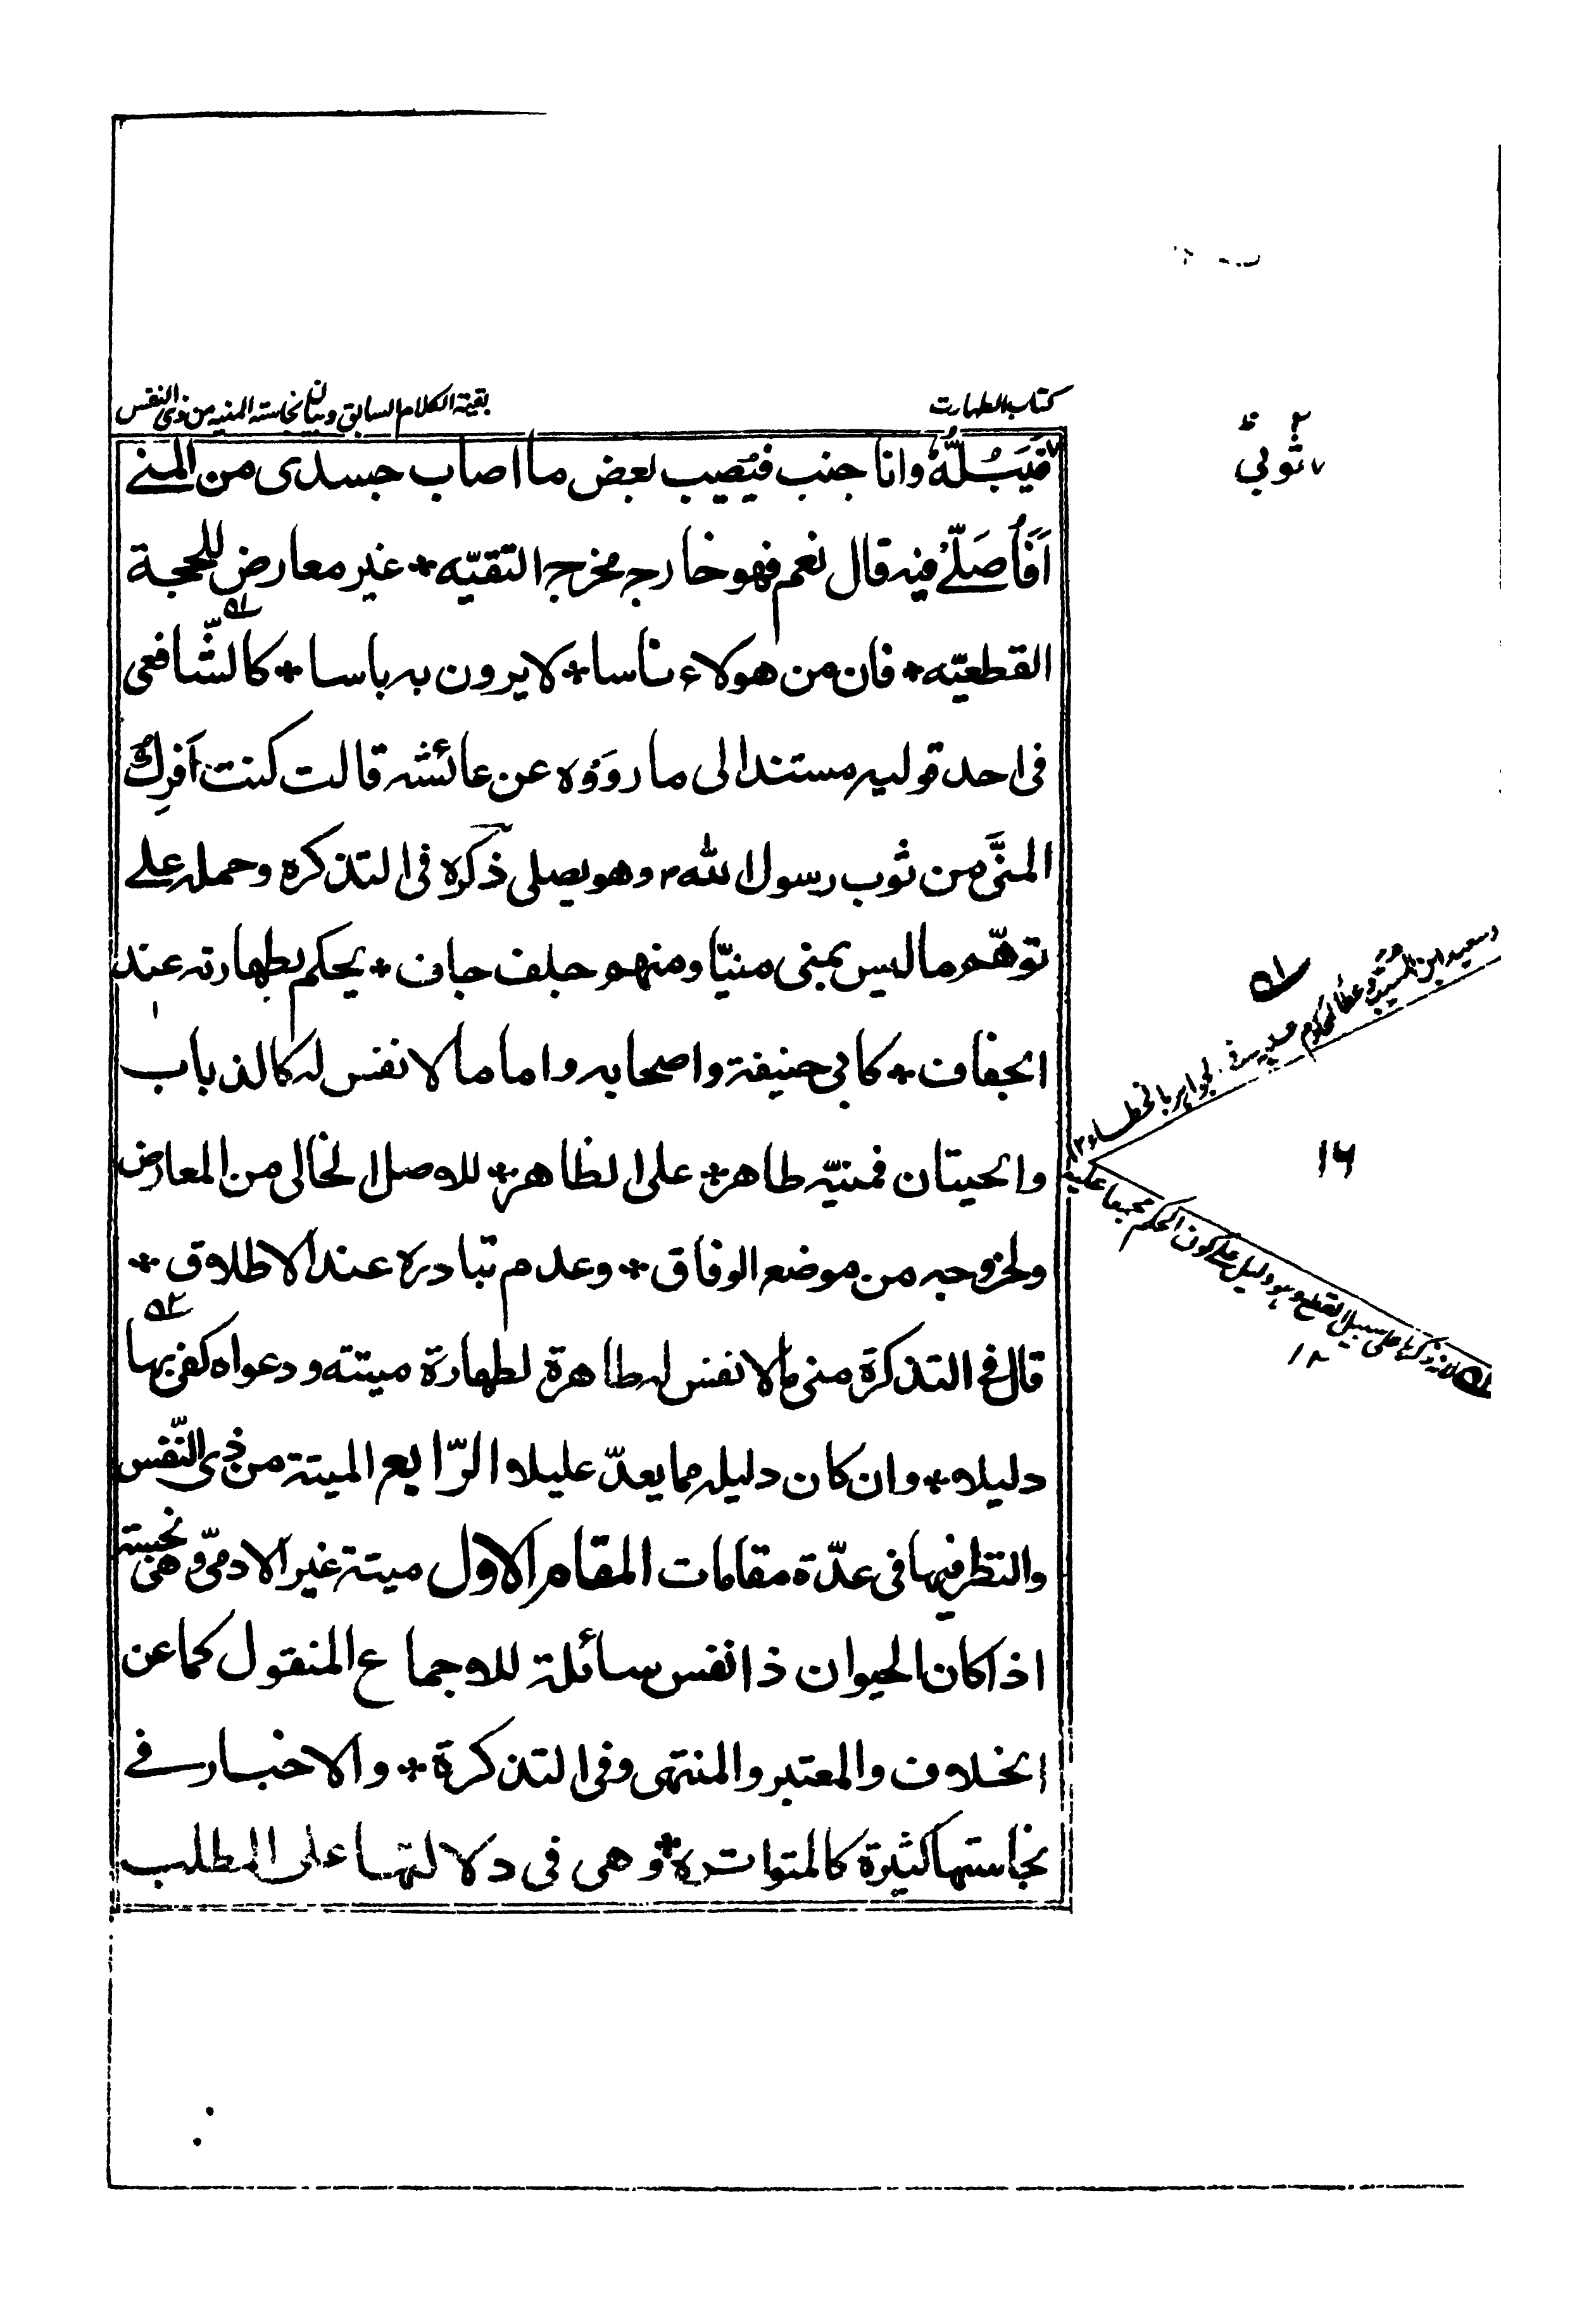 كتاب الطهارت
بقيته الكلام السابق وبيان نجاسته المنيه من ذى النفس
فَيَبُلُّهُ وانا جنب فيُصِيب بعض ما اصاب جسدى من المنے
اَفَأُصَلّےْ فيه قال نعم فهو خارج مخرج التقيّه * غير معارض للحجة
القطعيّه * فان من هولاء ناسا * لا يرون به باسا * كالشّافعى
فى احد قوليه مستندا الى ما روَوْه عن عائشه قالت كنت اَفرِكُ
المنَّى من ثوب رسول الله ۴ وهو يصلى ذكره فى التذكره وحمله علے
توهّم ما ليس بمنى منيّا ومنهم جلف جاف * يحكم بطهارته عند
الجفاف * كابى حنيفة واصحابه واما ما لا نفس له كالذباب
والحيتان فمنيّه طاهر * على الظاهر * للاصل الخالى من المعارض
ولخروجه من موضع الوفاق * وعدم تبادره عند الاطلاق *
قال فى التذكرة منى ما لا نفس له طاهرة لطهارة ميتته ودعواه كفى بها
دليلا * وان كان دليله مما يعدّ عليلا الرّابع الميتة من ذى النّفس
والنظر فيها فى عدّة مقامات المقام الاول ميتة غير الادمىّ وهى نجسته
اذا كان الحيوان ذا نفس سائلة للاجماع المنقول كما عن
الخلاف والمعتبر والمنتهى وفى التذكرة * والاخبار فے
نجاستها كثيرة كالمتواتره * وهى فى دلالتها على المطلب
ثوبى
۵۱
وسعيد ابن المسيب وعطا المحكوم عليه فى الجواهر بالخطاء ۱۲
۱۶
۵۲ لانه ذكرها على سبيل القطع وهو دليل على كون الحكم مجمعا عليه
۱۲